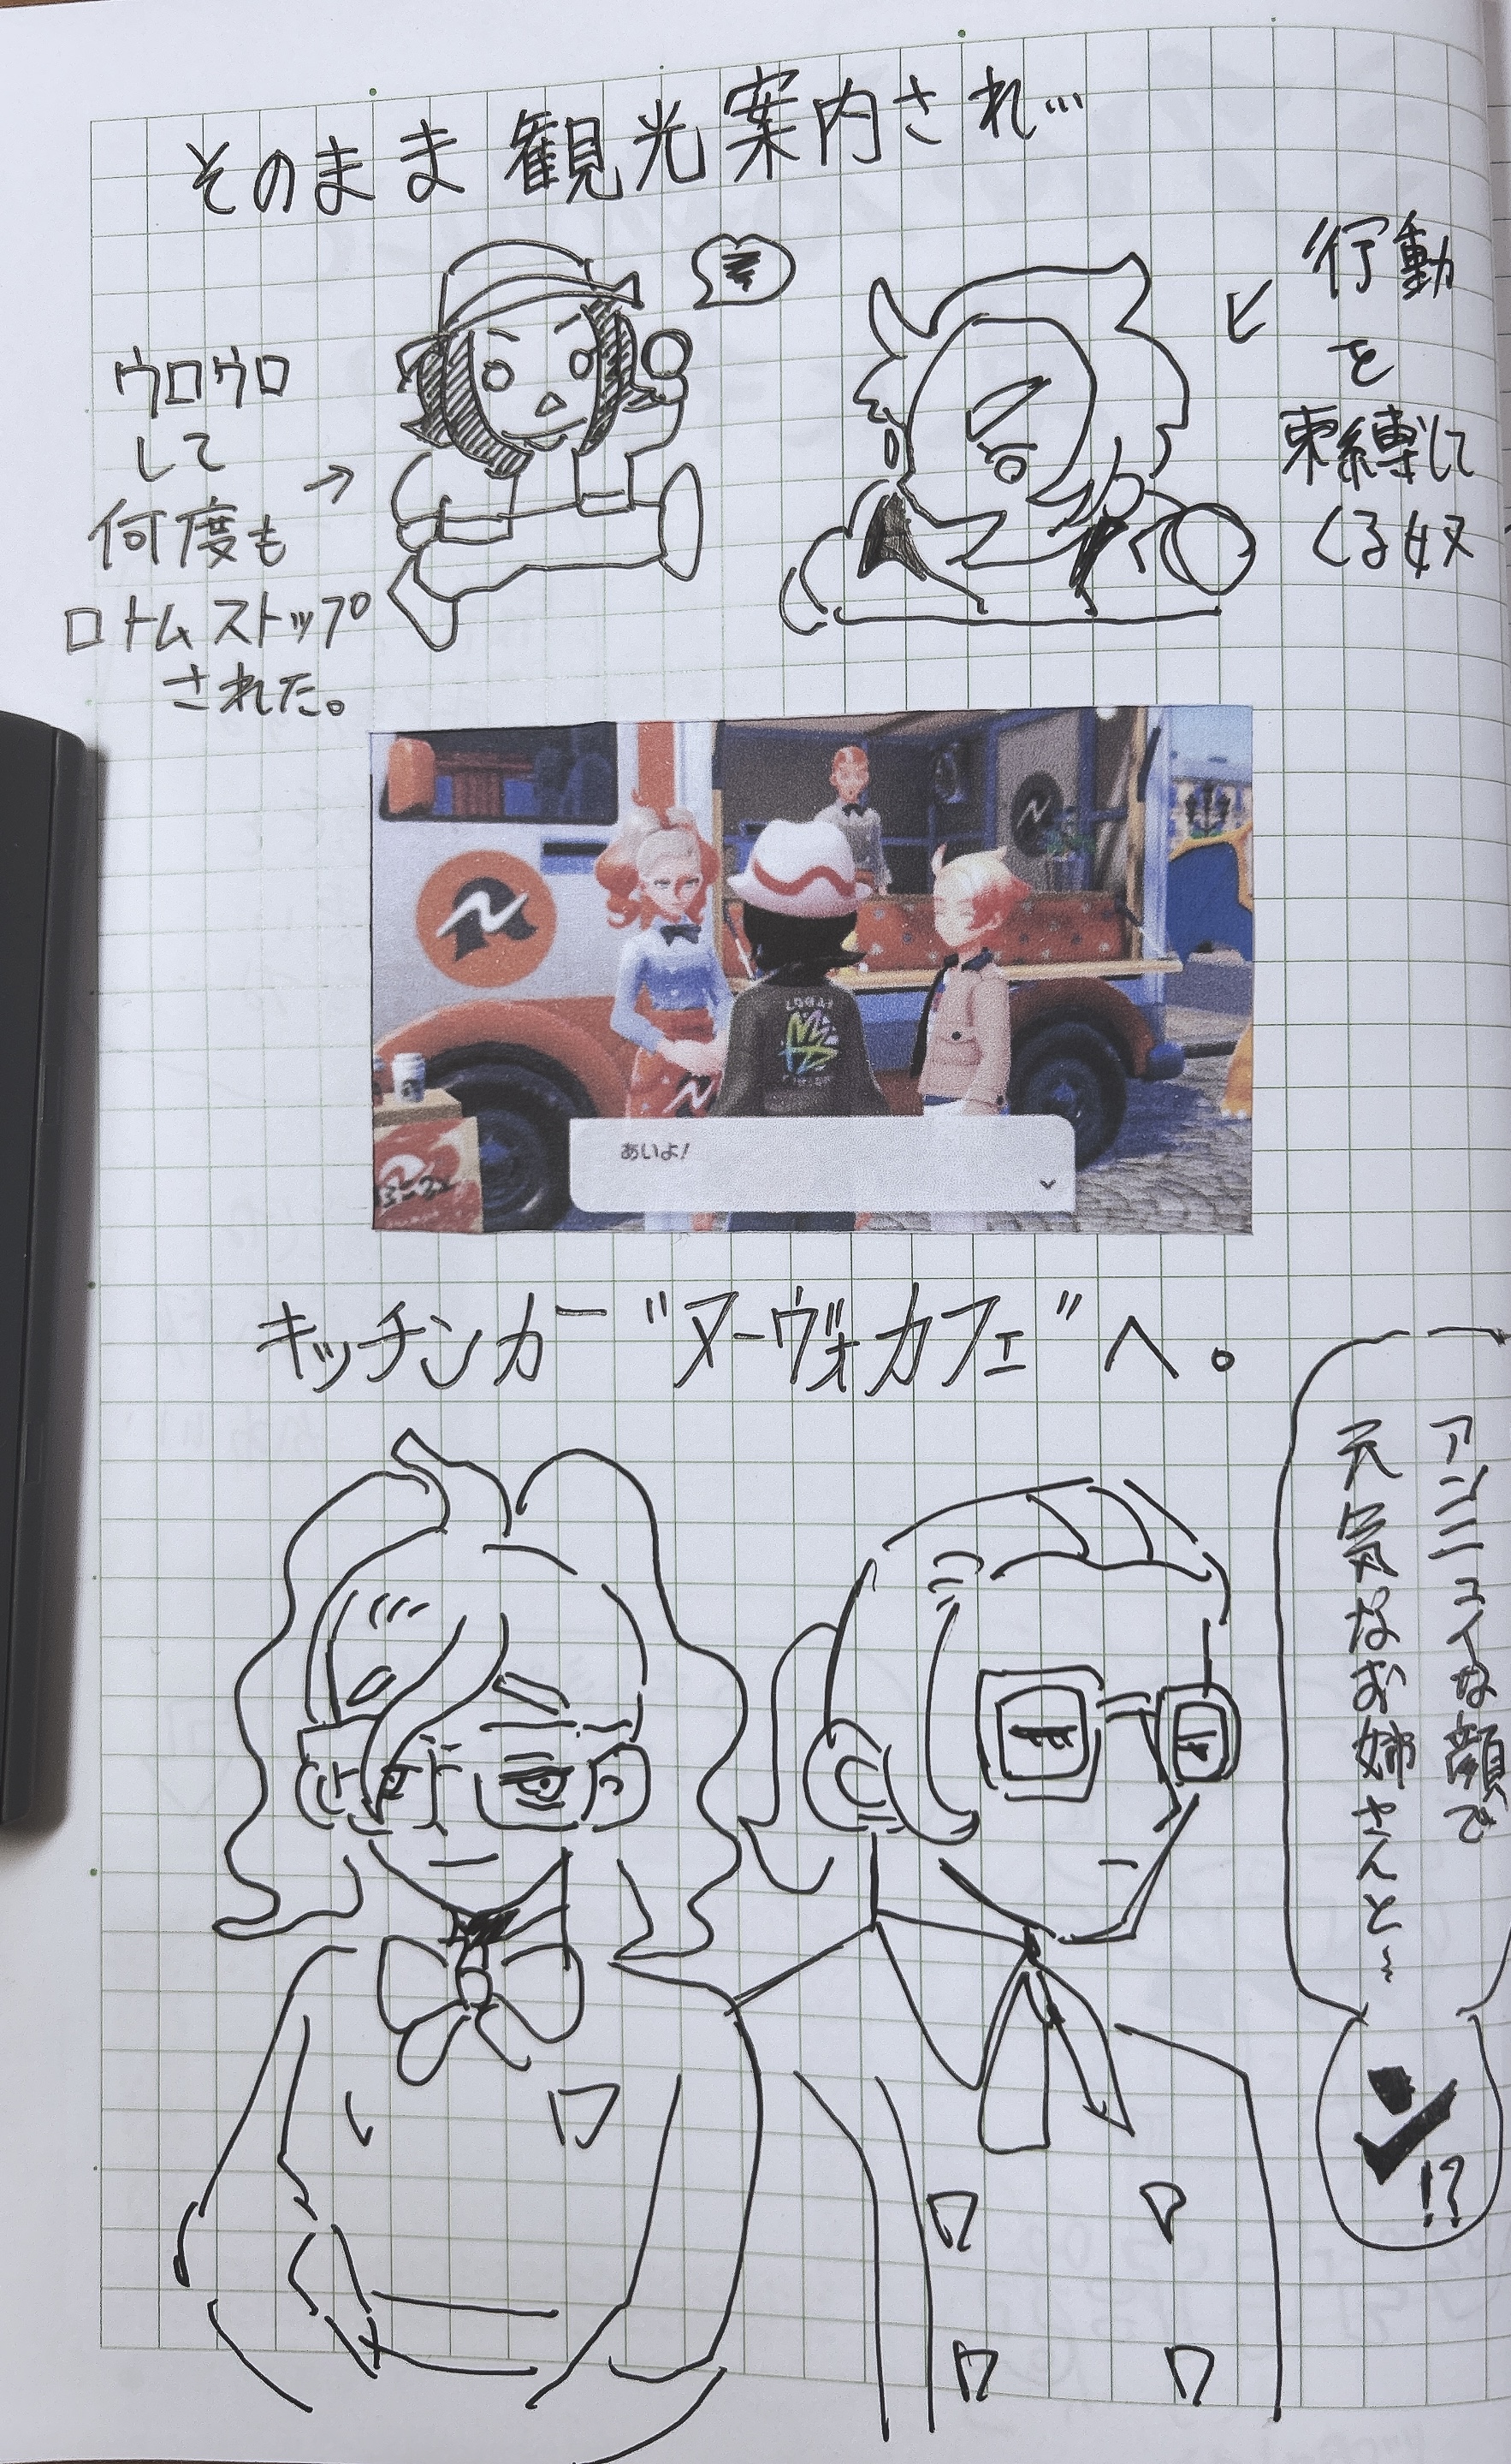 そのまま観光案内され…
ウロウロ
して
何度も
ロトムストップ
された。
→
行動
を
束縛して
くる奴
あいよ!
キッチンカー“ヌーヴォカフェ”へ。
アンニュイな顔で
元気なお姉さんと〜
シ!?